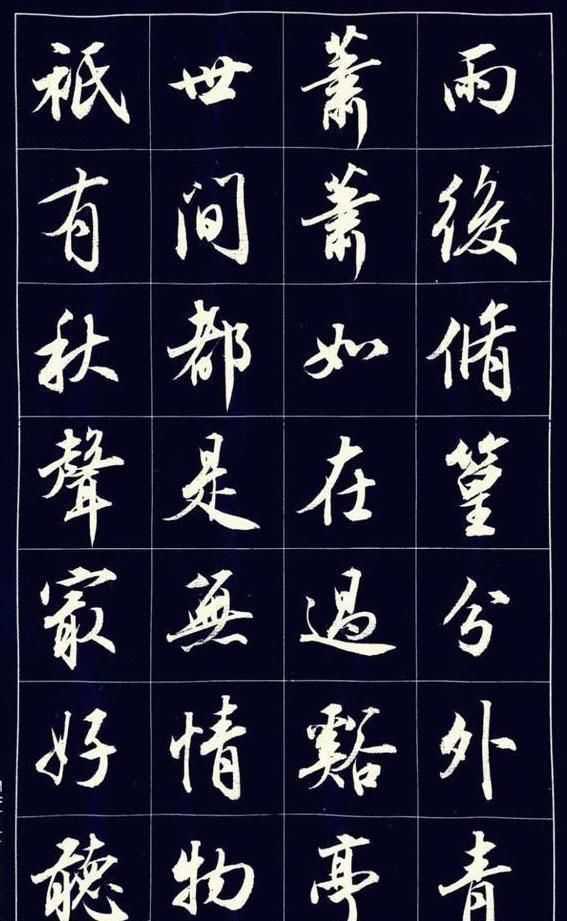 雨後脩篁分外青
蕭蕭如在過谿亭
世間都是無情物
祇有秋聲最好聽